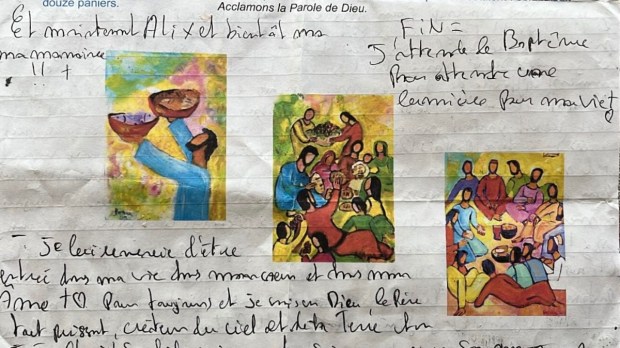 douze paniers.
Acclamons la Parole de Dieu.
Et maintenant Alix et bientôt ma
ma marraine
!! +
FiN =
J'attends le Baptême
Pour attendre une
lumière Pour ma vie
- je le remercie d'être
entrée dans ma vie dans mon cœur et dans mon
Ame +♡ Pour toujours et je crois en Dieu le Père
tout puissant, créateur du ciel et de la Terre